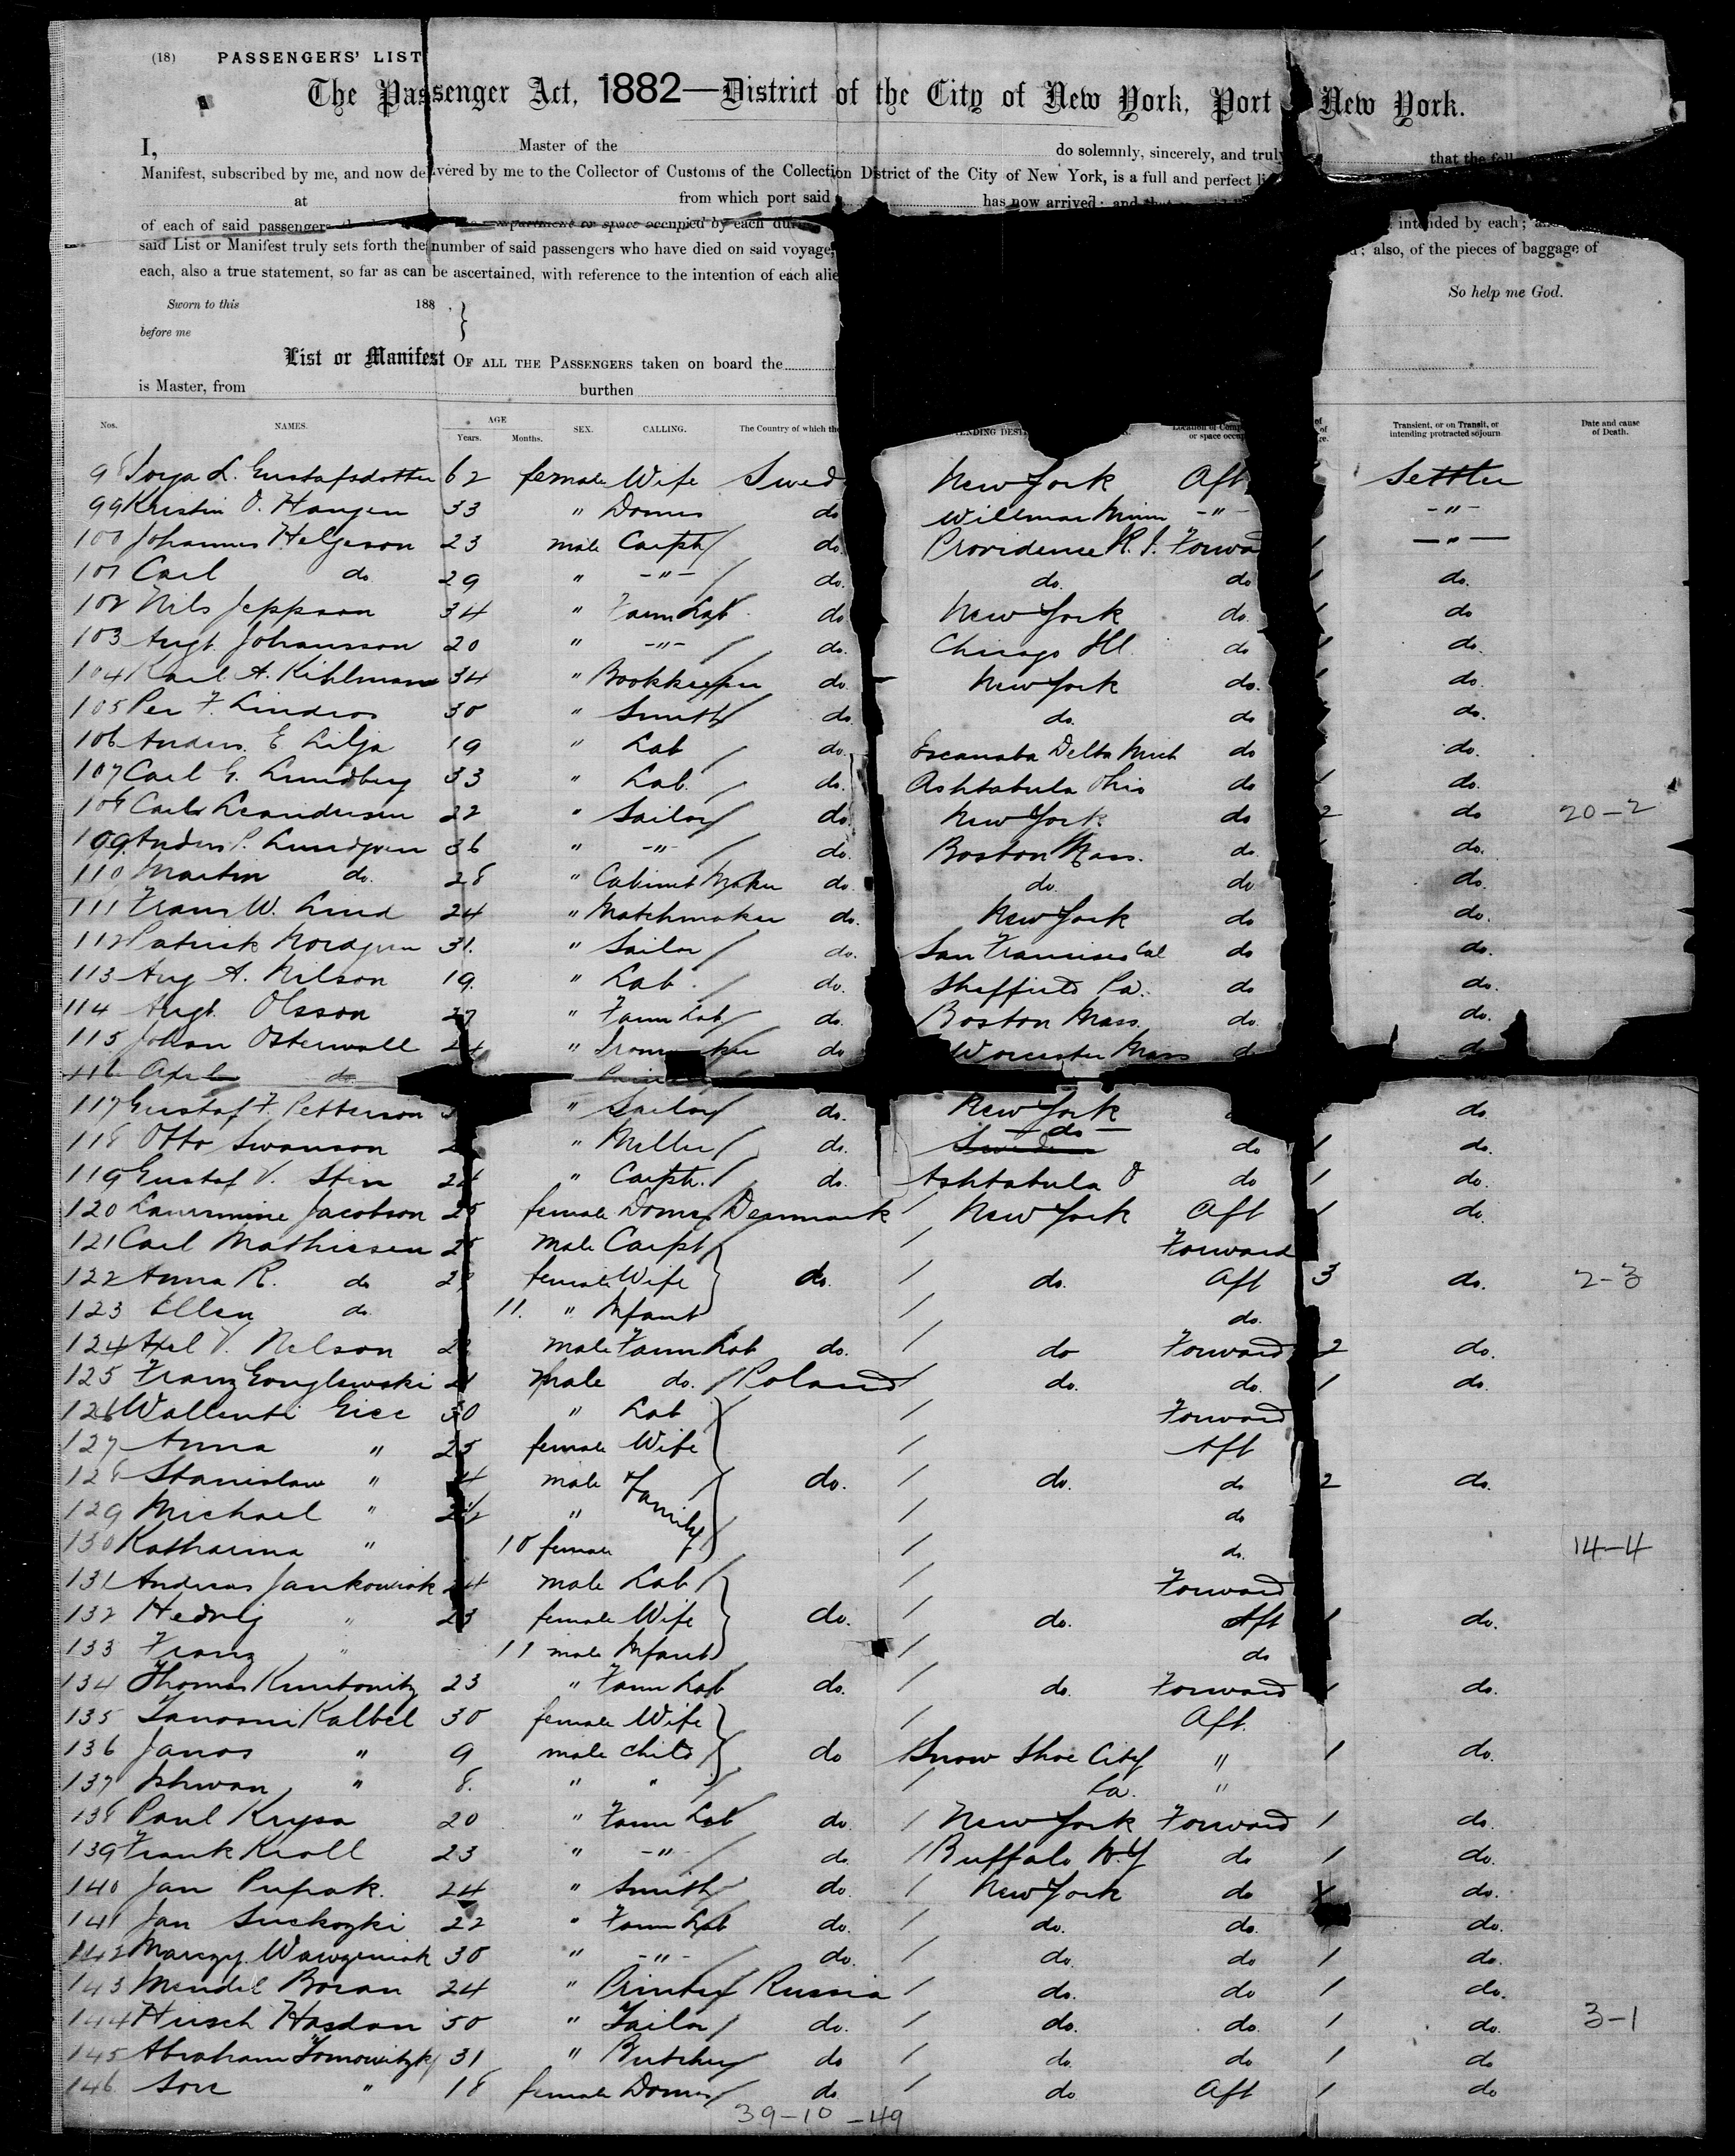 (18) PASSENGERS' LIST
The Passenger Act, 1882—District of the City of New York, Port New York.
I, Master of the do solemnly, sincerely, and truly that the
Manifest, subscribed by me, and now delivered by me to the Collector of Customs of the Collection District of the City of New York, is a full and perfect
at from which port said has now arrived; and
of each of said passengers or space occupied by each intended by each;
said List or Manifest truly sets forth the number of said passengers who have died on said voyage, also, of the pieces of baggage of
each, also a true statement, so far as can be ascertained, with reference to the intention of each
So help me God.
Sworn to this 188
before me
List or Manifest OF ALL THE PASSENGERS taken on board the
is Master, from burthen
Nos. NAMES. AGE Years. Months. SEX. CALLING. The Country of which Transient, or on Transit, or intending protracted sojourn Date and cause of Death.
98 L. Gustafsdotter 62 female Wife Swed New York Aft Settler
99 Kristin O. Haugen 33 " Domes do Willmar Minn -"- -"-
100 Johannes Helgeson 23 male Carptr do. Providence R. I. Forwa 1 -"-
101 Carl do. 29 " -"- do. do. do 1 do.
102 Nils Jeppson 34 " Farm Lab do New York do. 1 do
103 Augt. Johansson 20 " -"- do. Chicago Ill. do 1 do.
104 Karl A. Kihlman 34 " Bookkeeper do New York do. 1 do.
105 Per F. Lindros 30 " Smith do. do. do do.
106 Anders. E Lilja 19 " Lab do. Escanaba Delta Mich do do.
107 Carl G. Lundberg 33 " Lab. do. Ashtabula Ohio do 1 do.
108 Leandersen 22 " Sailor do. New York do 2 do 20-2
109 Anders P. Lundgren 36 " -"- do. Boston Mass. do do.
110 Martin do. 28 " Cabinet Maker do. do. do do.
111 Frans W. Lind 24 " Matchmaker do. New York do do.
112 Patrick Nordgren 31. " Sailor do. San Francisco Cal do do.
113 Aug A. Nilson 19. " Lab. do. Sheffield Pa. do do.
114 Augt. Olsson 27 " Farm Lab do. Boston Mass. do. do.
115 Johan Osterwall 24 " do Worcester Mass do
116 Axel do.
117 Gustaf F. Petterson " Sailor do. New York do.
118 Otto Swanson " Miller do. Sweden do do 1 do.
119 Gustaf V. Sten 24 " Carptr. do. Ashtabula O do 1 do.
120 Jacobson 25 female Domes Denmark 1 New York Aft 1 do.
121 Carl Mathiesen 25 male Carpt 1 Forward
122 Anna R. do female Wife do. 1 do. Aft 3 do. 2-3
123 Ellen do 11. " Infant 1 do.
124 Axel V. Nelson male Farm Lab do. 1 do Forward 2 do.
125 Franz 21 male do. Poland 1 do. do. 1 do.
126 30 " Lab 1 Forward
127 Anna " 25 female Wife 1 Aft
128 Stanislaw " 4 male Family do. 1 do. do 2 do.
129 Michael " " 1 do
130 Katharina " 10 female 1 do. 14-4
131 Andreas Jankowiak 24 male Lab 1 Forward
132 Hedwig " 23 female Wife do. 1 do. Aft 1 do.
133 Franz " 11 male Infant 1 do
134 Thomas 23 " Farm Lab do. 1 do. Forward 1 do.
135 Kalbel 30 female Wife 1 Aft.
136 Janos " 9 male child do 1 Snow Shoe City " 1 do.
137 Ishwan " 8. " " 1 Pa. "
138 Paul Krysa 20 " Farm Lab do. 1 New York Forward 1 do.
139 Frank Kroll 23 " -"- do. 1 Buffalo N.Y do 1 do.
140 Jan Pufrak. 24 " Smith do. 1 New York do 1 do.
141 Jan 22 " Farm Lab do. 1 do. do. do.
142 30 " -"- do. 1 do. do 1 do.
143 Mendel Boran 24 " Printer Russia 1 do. do 1 do.
144 Hirsch Hasdan 50 " Tailor do. 1 do. do. 1 do. 3-1
145 Abraham 31 " Butcher do 1 do. do 1 do
146 " 18 female Domes do 1 do Aft 1 do
39-10-49